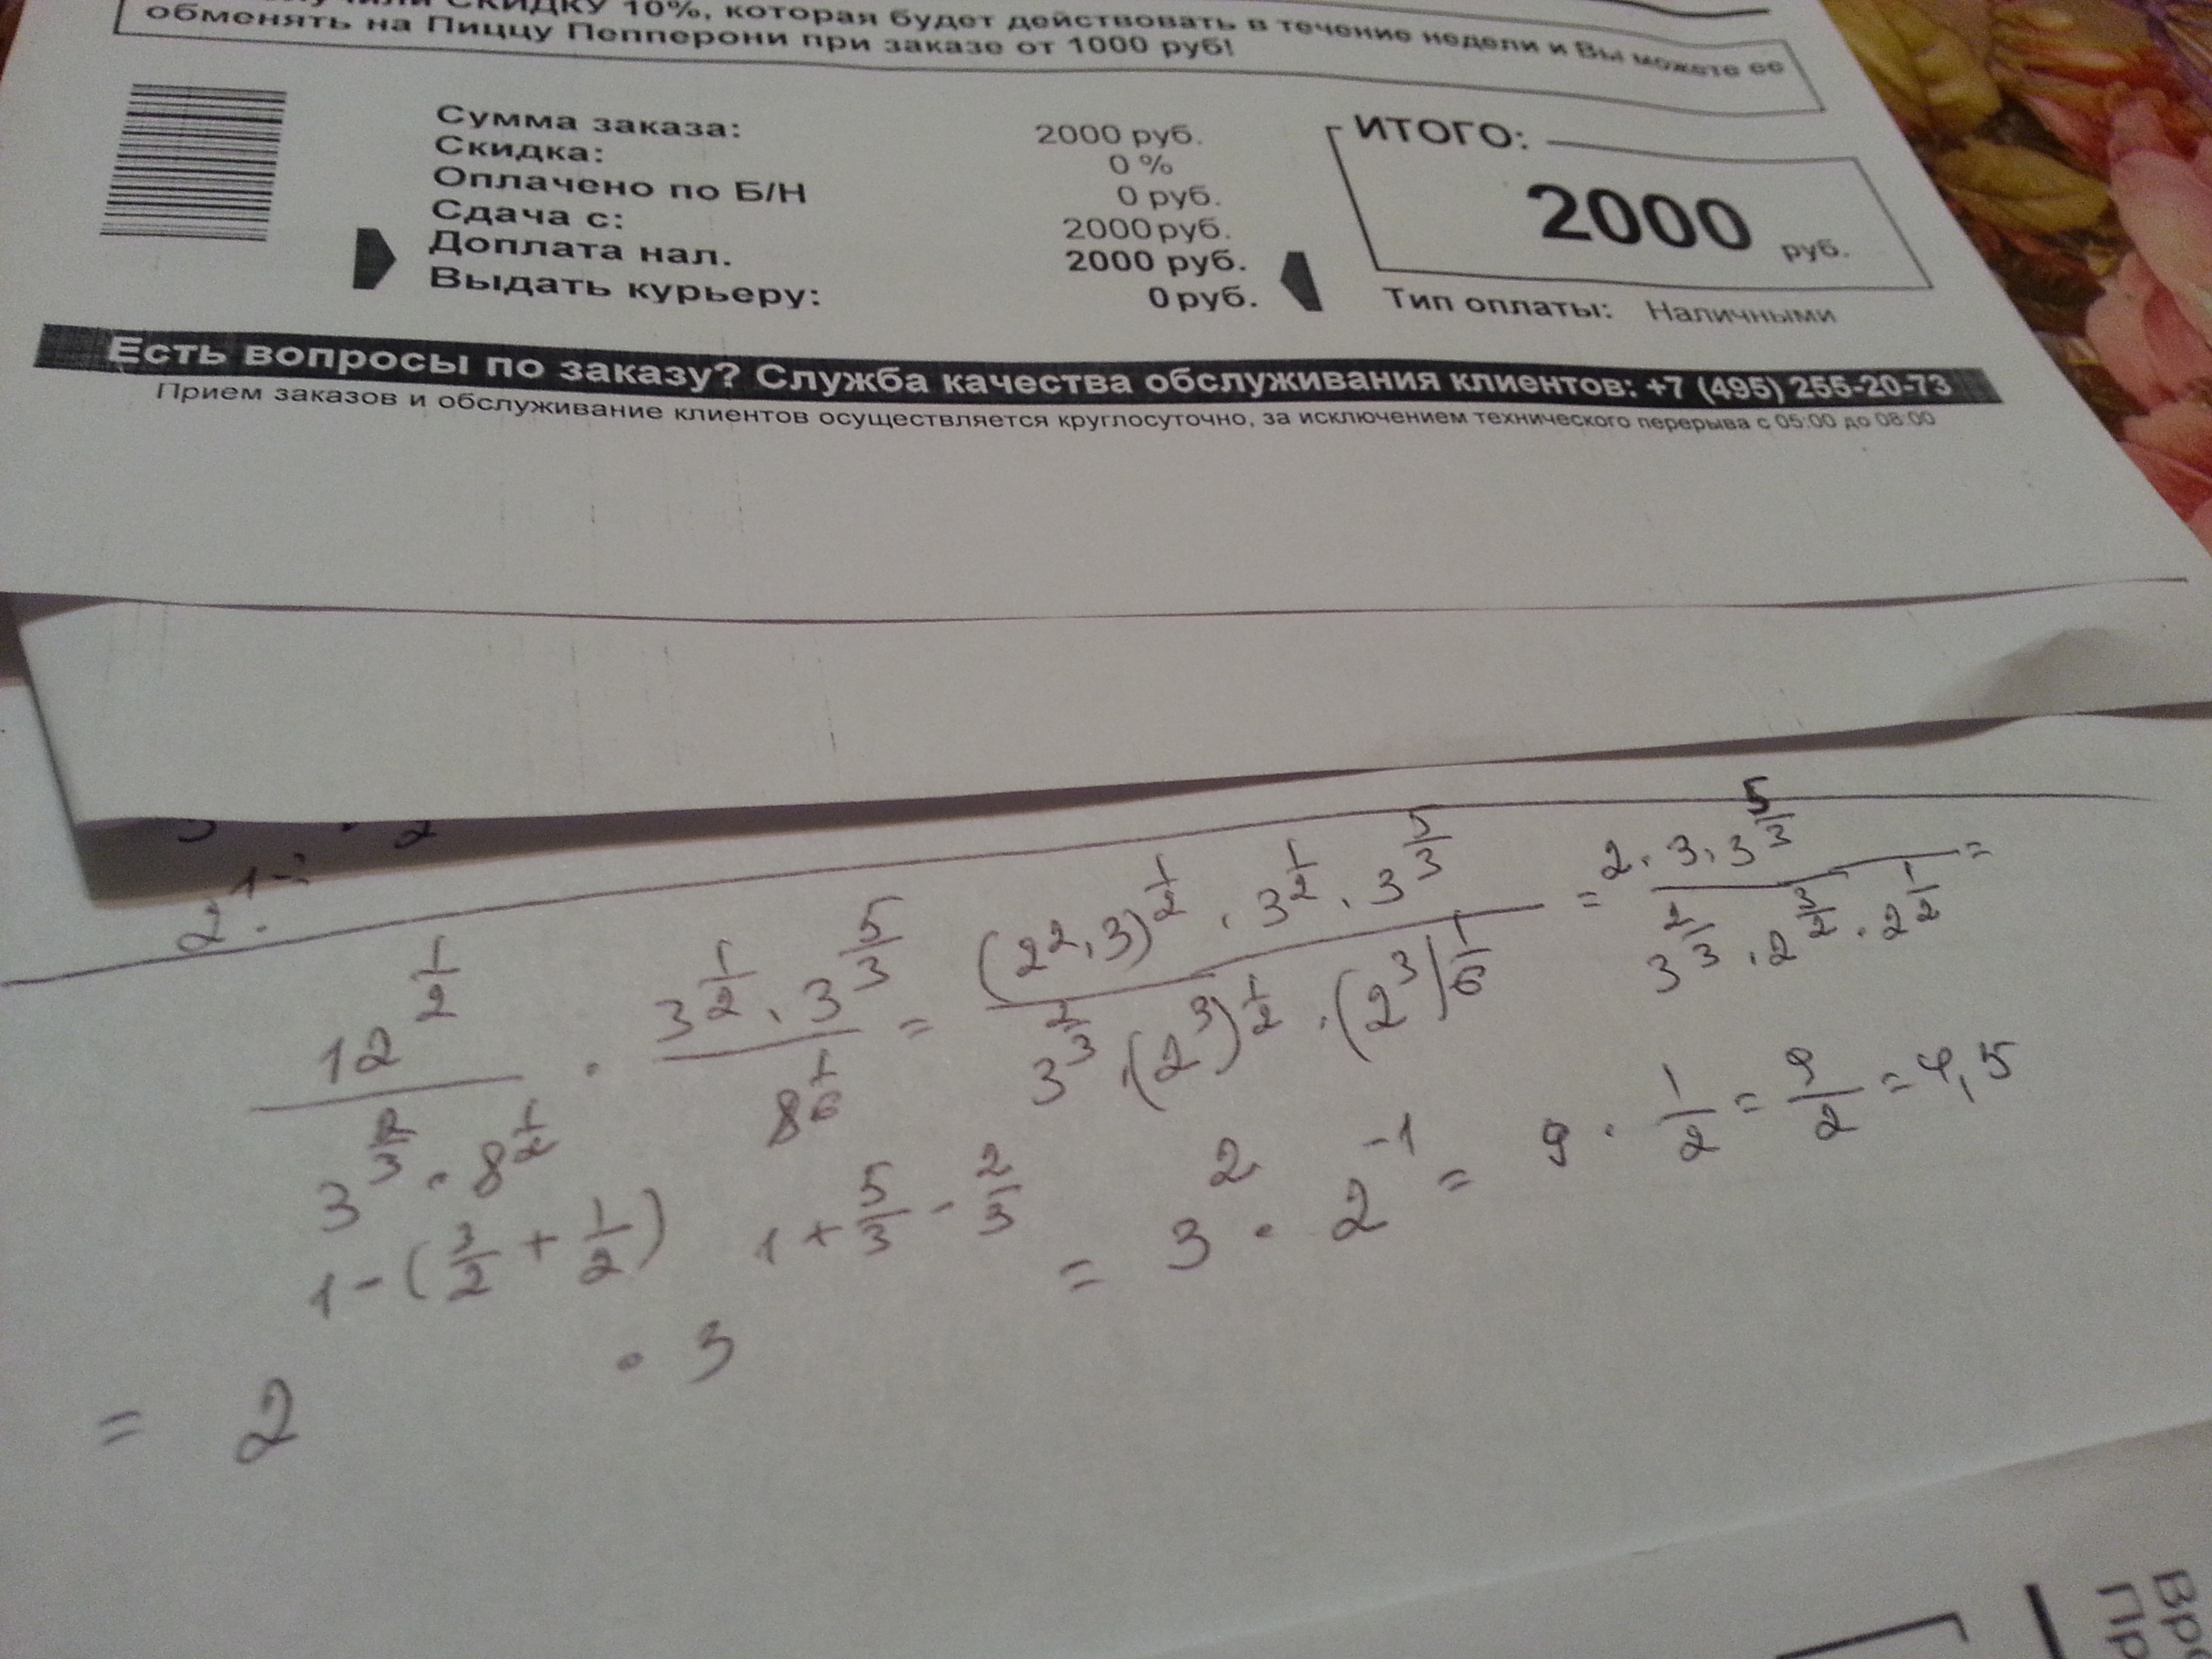 СКИДКУ 10%, которая будет действовать в течение недели и Вы можете ее
обменять на Пиццу Пепперони при заказе от 1000 руб!
Сумма заказа: 2000 руб.
Скидка: 0 %
Оплачено по Б/Н 0 руб.
Сдача с: 2000 руб.
Доплата нал. 2000 руб.
Выдать курьеру: 0 руб.
ИТОГО:
2000 руб.
Тип оплаты: Наличными
Есть вопросы по заказу? Служба качества обслуживания клиентов: +7 (495) 255-20-73
Прием заказов и обслуживание клиентов осуществляется круглосуточно, за исключением технического перерыва с 05:00 до 08:00
12^(1/2) / (3^(2/3) · 8^(1/2)) · (3^(1/2) · 3^(5/3)) / 8^(1/6) = ((2^2 · 3)^(1/2) · 3^(1/2) · 3^(5/3)) / (3^(2/3) · (2^3)^(1/2) · (2^3)^(1/6)) = (2 · 3 · 3^(5/3)) / (3^(2/3) · 2^(3/2) · 2^(1/2)) =
= 2^(1-(3/2+1/2)) · 3^(1+5/3-2/3) = 3^2 · 2^(-1) = 9 · 1/2 = 9/2 = 4,5